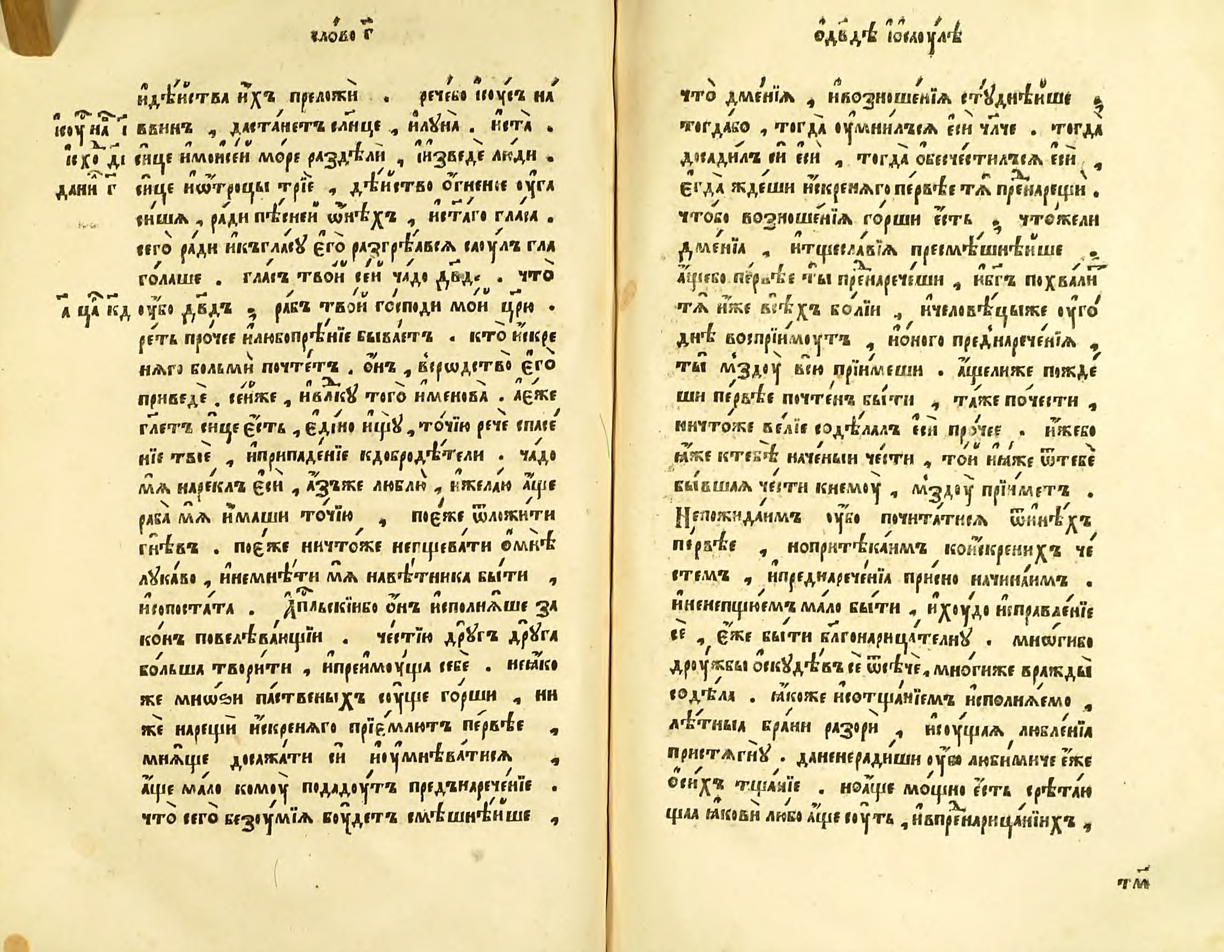 сло́во г҃
и҆дѣ́йства и҆́хъ преложѝ . рече́бо і҆соу́съ на́
і҆соу́ на́ і҃
ввинъ , даста́нетъ сл҃нце , и҆лꙋна̀ . и҆ста̀ .
и҆схо́ д҃і
си́це и҆мѡѷсе́й мо́ре раздѣлѝ , и҆и҆зведѐ лю́ди .
дани́ г҃
си́це и҆ѡ҆́троцы трїѐ , дѣ́йство ѻ҆́гненое оу҆га
си́шѧ , ра́ди пѣ́сней ѡ҆́нѣхъ , и҆ста́го гла́са .
сего̀ ра́ди и҆къгла́сꙋ є҆го̀ разгрѣ́всѧ саоу́лъ гла
го́лаше . гла́съ тво́й се́й ча́до дв҃де . что̀
а҃ ца́ к҃д
оу҆́бо дв҃дъ ; ра́бъ тво́й го́споди мо́й цр҃ю .
ре́ть про́чее и҆любопрѣ́нїе быва́етъ . кто̀ и҆́скре
нѧго бо́льми почте́тъ . ѻ҆́нъ , вѣродство̀ є҆го̀
приведѐ . се́йже , и҆влⷣкꙋ того̀ и҆менова̀ . а҆є҆́же
гл҃етъ си́це є҆́сть , є҆ди́но и҆щꙋ̀ , то́чїю речѐ спасе́
нїе твоѐ , и҆припаде́нїе кдобродѣ́тели . ча́до
мѧ̀ наре́клъ є҆сѝ , а҆́зъже люблю̀ , и҆жела́ю а҆́ще
раба̀ мѧ̀ и҆́маши то́чїю , поє҆́же ѿложи́ти
гнѣ́въ . поє҆́же ничто́же непщева́ти ѡ҆мнѣ̀
лꙋка́во , и҆немнѣ́ти мѧ̀ навѣ́тника бы́ти ,
и҆сопоста́та . а҆пⷭ҇льскїйбо ѻ҆́нъ и҆сполнѧ́ше за
ко́нъ повелѣва́ющїй . че́стїю дрꙋ́гъ дрꙋ́га
бо́льша твори́ти , и҆преимоу́ща себѐ . не꙳ꙗ҆́ко
же мно́зи па́ственыхъ соу́ще го́рши , ни
же нарещѝ и҆́скренѧго прїе́млютъ пе́рвѣе ,
мнѧ́ще досажа́ти сѝ и҆оу҆мнѣва́тисѧ ,
а҆́ще ма́ло комоу̀ подадоу́тъ пре́дънарече́нїе .
что̀ сего̀ безоу́мїѧ боу́детъ смѣшнѣ́йше ,
ѡ҆дв҃дѣ и҆ѡ҆саоу́лѣ
что̀ дме́нїѧ , и҆возноше́нїѧ стꙋднѣ́йше ;
тогда́бо , тогда̀ оу҆мни́лъсѧ є҆сѝ чл҃че . тогда̀
досади́лъ сѝ є҆сѝ , тогда̀ ѡ҆безче́стилъсѧ є҆сѝ ,
є҆гда̀ жде́ши и҆́скренѧго пе́рвѣе тѧ̀ пренⷣарещѝ .
что́бо возноше́нїѧ го́рши є҆́сть ; что́жели
дме́нїа , и҆тщесла́вїѧ пресмѣшнѣ́йше ;
а҆́щебо пе́рвѣе ты̀ пренⷣарече́ши , и҆бг҃ъ похва́литъ
тѧ̀ и҆́же всѣ́хъ бо́лїй , и҆человѣ́цыже оу҆го́
днѣ воспрїи́моутъ , и҆ѻ҆́ного преднарече́нїѧ ,
ты̀ мздоу̀ всю̀ прїи́меши . а҆́щелиже пожде́
ши пе́рвѣе почте́нъ бы́ти , та́же поче́сти ,
ничто́же ве́лїе содѣ́лалъ є҆сѝ про́чее . и҆́жебо
ꙗ҆́же ктебѣ̀ наче́ный че́сти , то́й и҆ꙗ҆́же ѿтебѐ
бы́вшаѧ че́сти кнемоу̀ , мздоу̀ прїи́метъ .
Непожида́имъ оу҆́бо почита́тисѧ ѿи҆нѣ́хъ
пе́рвѣе , нопритѣка́имъ кои҆́скренихъ че́
стемъ , и҆преднарече́нїа при́сно начина́имъ .
и҆ненепщꙋ́емъ ма́ло бы́ти , и҆хоу́до и҆справле́нїе
сѐ , є҆́же бы́ти благонарица́телнꙋ . мнѡ́гибо
дроу́жбы ѡ҆скꙋдѣ́въ сѐ ѿсѣ́че , мно́гиже вражды̀
содѣ́ла . ꙗ҆́коже и҆сотща́нїемъ и҆сполнѧ́емо ,
лѣ́тныа бра́ни разорѝ , и҆соу́щаѧ любле́нїа
пристѧ́гнꙋ . даненеради́ши оу҆́бо люби́миче є҆́же
ѡ҆си́хъ тща́нїе . ноа҆́ще мо́щно є҆́сть срѣта́ю
щаа ꙗ҆кові́ любо а҆́ще соу́ть , и҆впренⷣарица́нїихъ ,
тм́